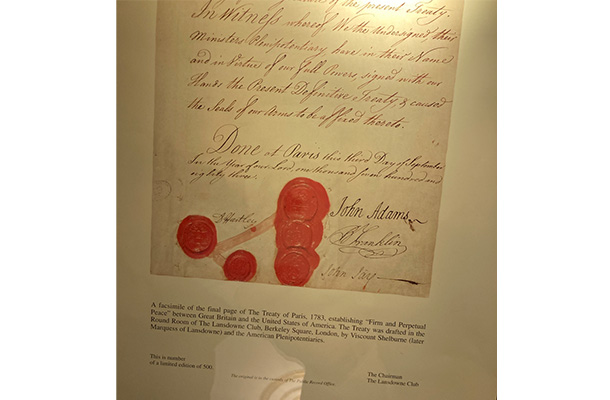 of the present Treaty.
In Witness whereof We the Undersigned their
Ministers Plenipotentiary, have in their Name
and in Virtue of our Full Powers, signed with our
Hands the Present Definitive Treaty, & caused
the Seals of our Arms to be affixed thereto.
Done at Paris this third Day of September
In the Year of our Lord, one thousand seven hundred and
eighty three.
D Hartley
John Adams
B Franklin
John Jay
A facsimile of the final page of The Treaty of Paris, 1783, establishing "Firm and Perpetual
Peace" between Great Britain and the United States of America. The Treaty was drafted in the
Round Room of The Lansdowne Club, Berkeley Square, London, by Viscount Shelburne (later
Marquess of Lansdowne) and the American Plenipotentiaries.
This is number
of a limited edition of 500.
The original is in the custody of The Public Record Office.
The Chairman
The Lansdowne Club